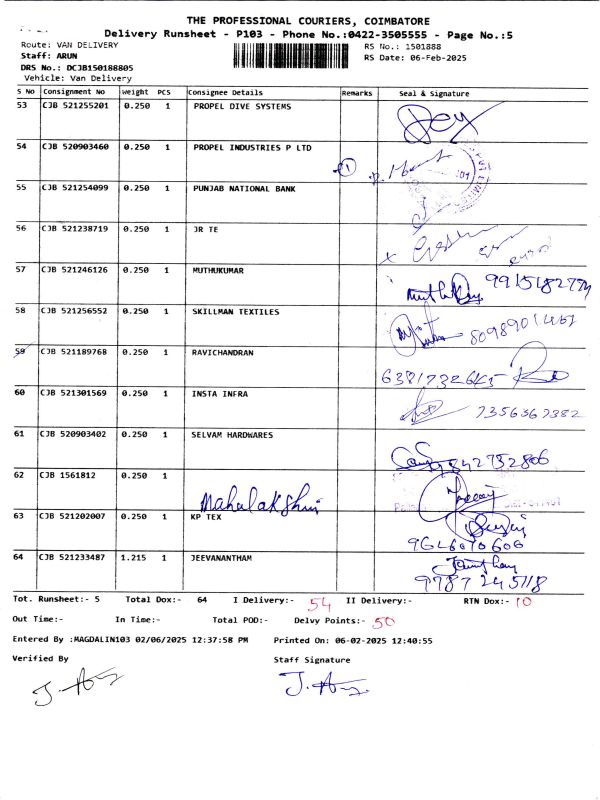 THE PROFESSIONAL COURIERS, COIMBATORE
Delivery Runsheet - P103 - Phone No.:0422-3505555 - Page No.:5
Route: VAN DELIVERY RS No.: 1501888
Staff: ARUN RS Date: 06-Feb-2025
DRS No.: DCJB150188805
Vehicle: Van Delivery
S No Consignment No Weight PCS Consignee Details Remarks Seal & Signature
53 CJB 521255201 0.250 1 PROPEL DIVE SYSTEMS
54 CJB 520903460 0.250 1 PROPEL INDUSTRIES P LTD
1
55 CJB 521254099 0.250 1 PUNJAB NATIONAL BANK
56 CJB 521238719 0.250 1 JR TE
57 CJB 521246126 0.250 1 MUTHUKUMAR
58 CJB 521256552 0.250 1 SKILLMAN TEXTILES
59 CJB 521189768 0.250 1 RAVICHANDRAN
60 CJB 521301569 0.250 1 INSTA INFRA
7356367382
61 CJB 520903402 0.250 1 SELVAM HARDWARES
62 CJB 1561812 0.250 1
Mahalakshmi
63 CJB 521202007 0.250 1 KP TEX
9626070606
64 CJB 521233487 1.215 1 JEEVANANTHAM
9787245118
Tot. Runsheet:- 5 Total Dox:- 64 I Delivery:- 54 II Delivery:- RTN Dox:- 10
Out Time:- In Time:- Total POD:- Delvy Points:- 50
Entered By :MAGDALIN103 02/06/2025 12:37:58 PM Printed On: 06-02-2025 12:40:55
Verified By Staff Signature